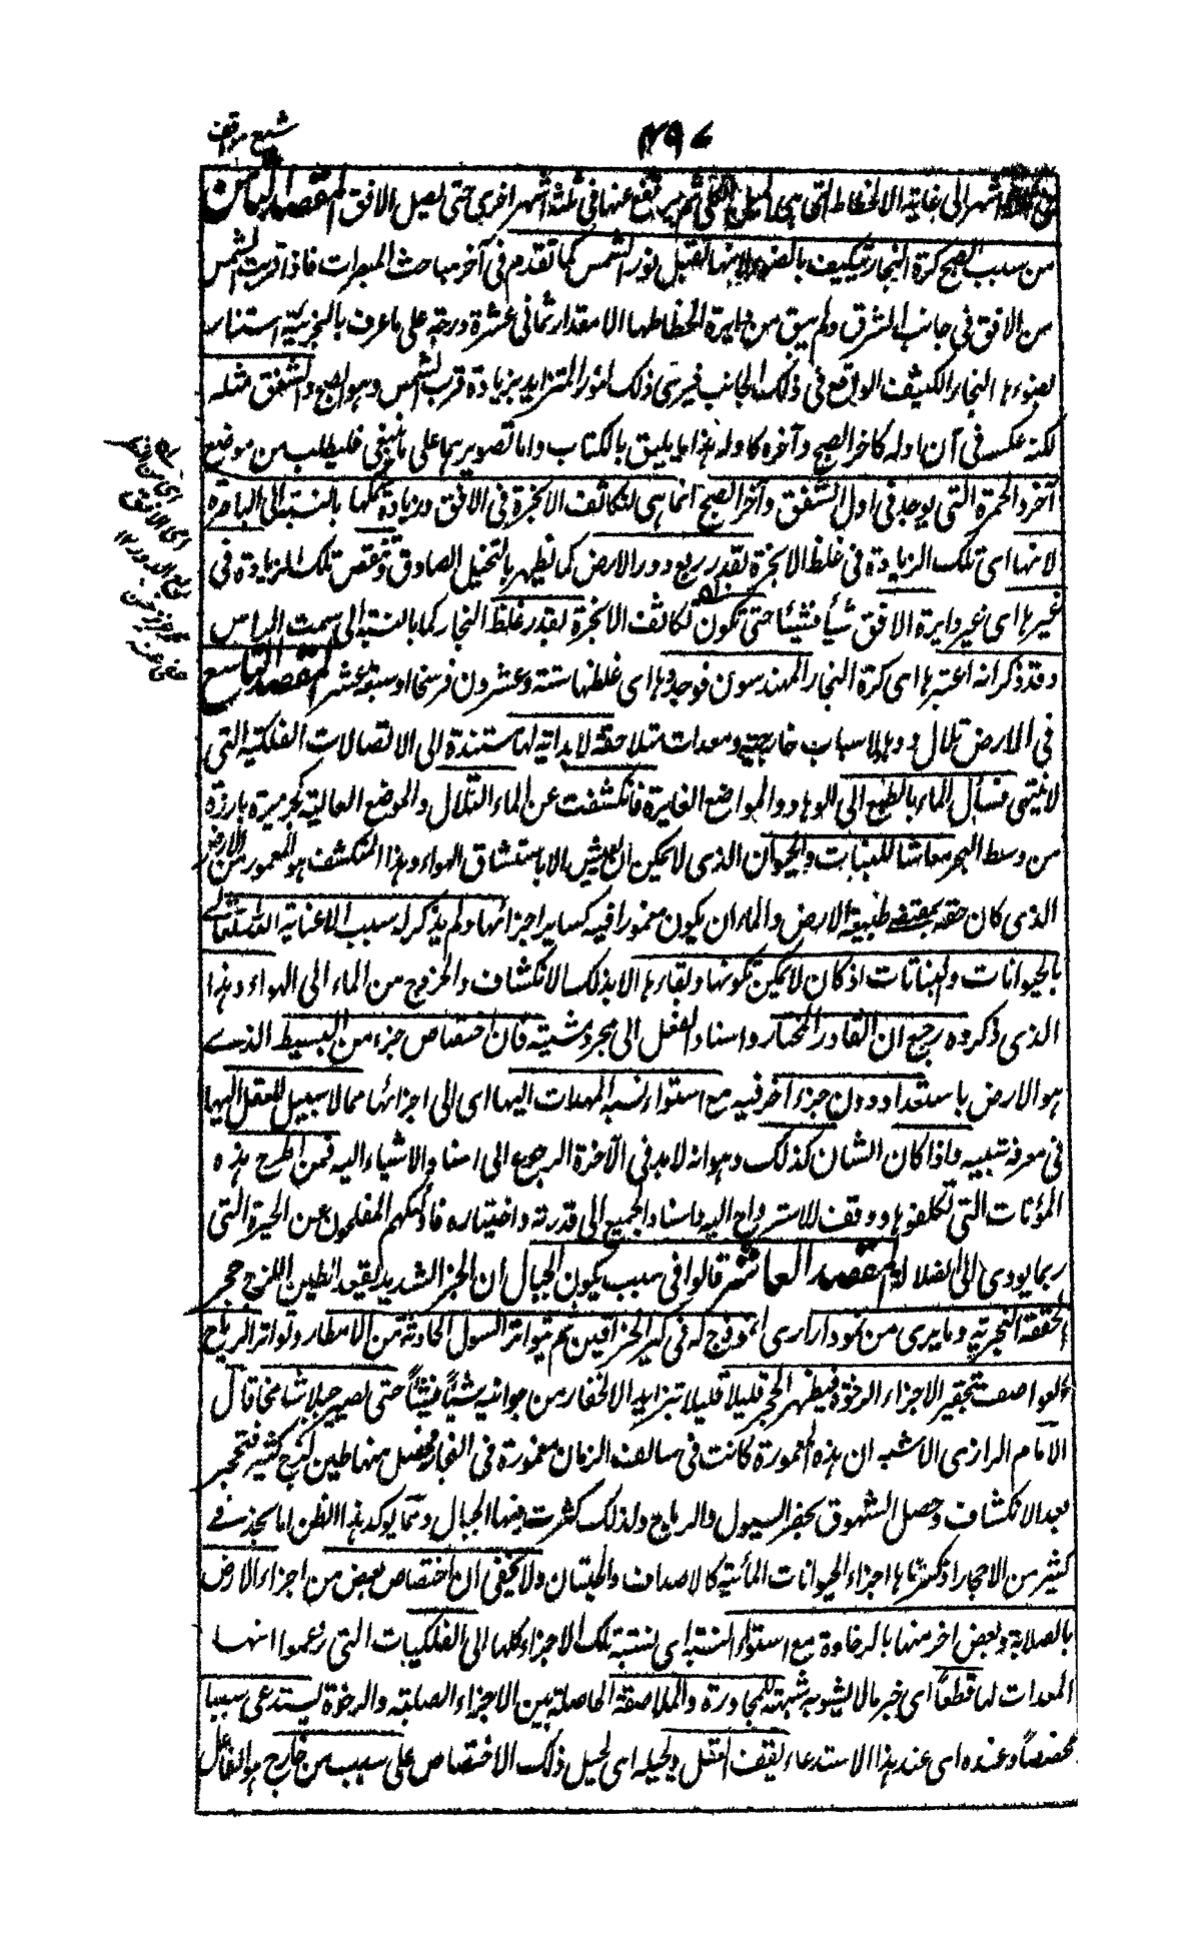 شرح مواقف
٤٩٧
اشهر الى غاية الانحطاط التى هى الميل الكلى ثم يرتفع عنها فى ثلثة اشهر اخرى حتى يصل الافق المقصد الثامن
من سبب الصبح كرة البخار تتكيف بالضوء لانها تقبل نور الشمس كما تقدم فى آخر مباحث المبصرات فاذا قربت الشمس
من الافق فى جانب المشرق ولم يبق من دايرة انحطاطها الا مقدار ثمانى عشرة درجة على ما عرف بالتجربة استنار
بضوءها البخار الكثيف الواقع فى ذلك الجانب فيرى ذلك النور المتزايد بزيادة قرب الشمس وهو الصبح والشفق مثله
لكنه عكسه فى آن اوله كاخر الصبح وآخره كاوله هذا ما يليق بالكتاب واما تصويرهما على ما ينبغى فليطلب من موضع
آخر والحمرة التى يوجد فى اول الشفق وآخر الصبح انما هى لتكاثف الابخرة فى الافق وزيادة سمكها بالنسبة الى الباصرة
لانها اى تلك الزيادة فى غلظ الابخرة بقدر ربع دور الارض كما يظهر بالتخيل الصادق وتنقص تلك الزيادة فى
غيرها اى غير دايرة الافق شيأ فشيئا حتى تكون تكاثف الابخرة بقدر غلظ البخار كما بالنسبة الى سمت الراس
وقد ذكر انه اعتبرها اى كرة البخار المهندسون فوجدوها اى غلظها ستة وعشرون فرسخا او سبعة عشر المقصد التاسع
فى الارض تلال ووهاد لاسباب خارجية ومعدات متلاحقة لا بداية لها مستندة الى الاتصالات الفلكية التى
لا تتناهى فسال الماء بالطبع الى الوهاد والمواضع الغايرة فانكشفت عن الماء التلال والموضع العالية كجزيرة بارزة
من وسط البحر معاشا للنبات والحيوان الذى لا يمكن ان يعيش الا باستنشاق الهواء وهذا المنكشف هو المعمور من الارض
الذى كان حقه بمقتضى طبيعة الارض والماء ان يكون مغمورا فيه كساير اجزائها ولم يذكر له سبب الا عناية الله تعالى
بالحيوانات والنباتات اذ كان لا يمكن تكونها وبقاءها الا بذلك الانكشاف والخروج من الماء الى الهواء وهذا
الذى ذكروه رجوع ان القادر المختار واسناد الفعل الى مجرد مشيته فان اختصاص جزء من البسيط الذى
هو الارض باستعداد دون جزء آخر فيه مع استواء نسبة المعدات اليها اى الى اجزائها مما لا سبيل للعقل اليها
فى معرفة سببه واذا كان الشان كذلك وهو انه لا بد فى الآخرة الرجوع الى اسناد الاشياء اليه فمن اطرح هذه
المؤنات التى تكلفوها ووقف للاسترواح اليه باسناد الجميع الى قدرته واختياره فاولئك هم المفلحون عن الحيرة التى
ربما يودى الى الضلالة المقصد العاشر قالوا فى سبب تكون الجبال ان الحر الشديد يعقد الطين اللزج حجر
الحققته التجربة وما يرى من نمودار اى انموذج له فى كيز الخزافين ثم بتواتر السيول الحادثة من الامطار وتواتر الرياح
العواصف تحفير الاجزاء الرخوة فيظهر الحجر قليلا قليلا تتزايد الانحفار من جوانبه شيأ فشيئا حتى يصير جبلا شامخا قال
الامام الرازى الاشبه ان هذه المعمورة كانت فى سالف الزمان مغمورة فى البحار فحصل منها طين لزج كثير فتحجر
بعد الانكشاف وحصل الشهوق بحفر السيول والرياح ولذلك كثرت فيها الجبال ومما يوكد هذا الظن انا نجد فى
كثير من الاحجار اذ كسرناها اجزاء الحيوانات المائية كالاصداف والحيتان ولا يخفى ان اختصاص بعض من اجزاء الارض
بالصلابة وبعض اخر منها بالرخاوة مع استواء النسبة اى نسبة تلك الاجزاء كلها الى الفلكيات التى زعموا انها
المعدات لها قطعا اى خبر ما لا يشوبه شبهة للمجاورة والملاصقة الحاصلة بين الاجزاء الصلبة والرخوة يستدعى سببا
مخصصا وعنده اى عند هذا الاستدعاء يقف العقل ويحيله اى يحيل ذلك الاختصاص على سبب من خارج هو الفاعل